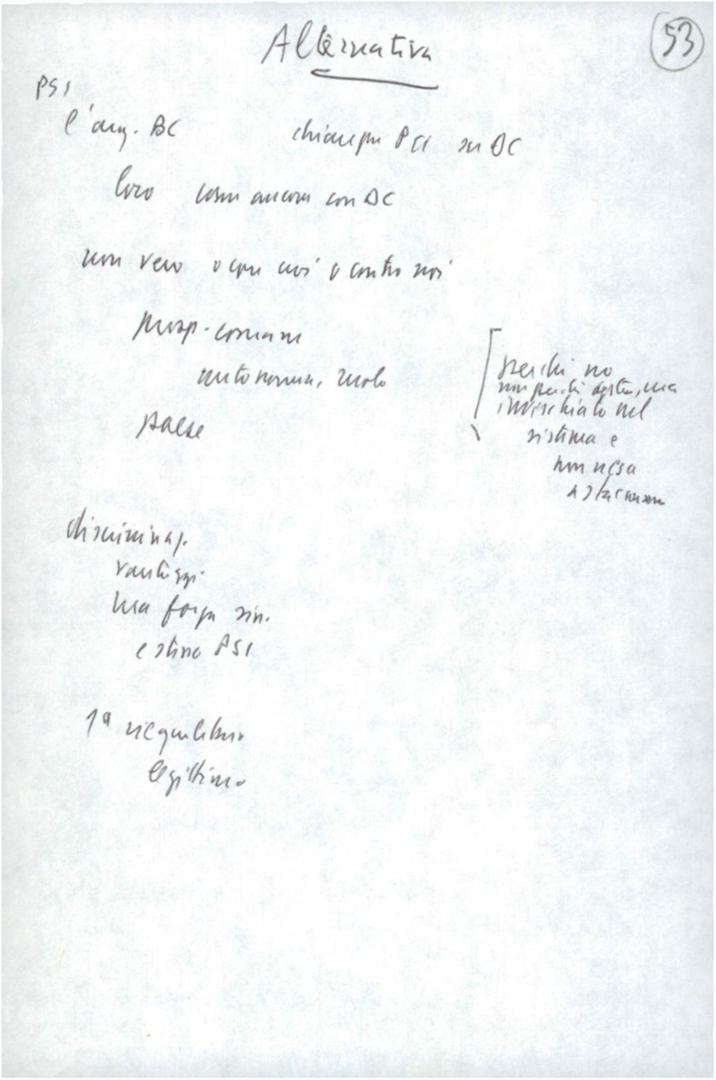 Alternativa
53
PSI
l'arg. BC
chiarezza PCI su DC
loro come ancora con DC
non vero o con noi o contro noi
prosp. comune
autonomia, ruolo
paese
perché no
non perché destra, ma
invischiato nel
sistema e
non riesce
a staccarsi
discriminaz.
vantaggi
ma forza sin.
e stima PSI
1ª riequilibrio
legittimo